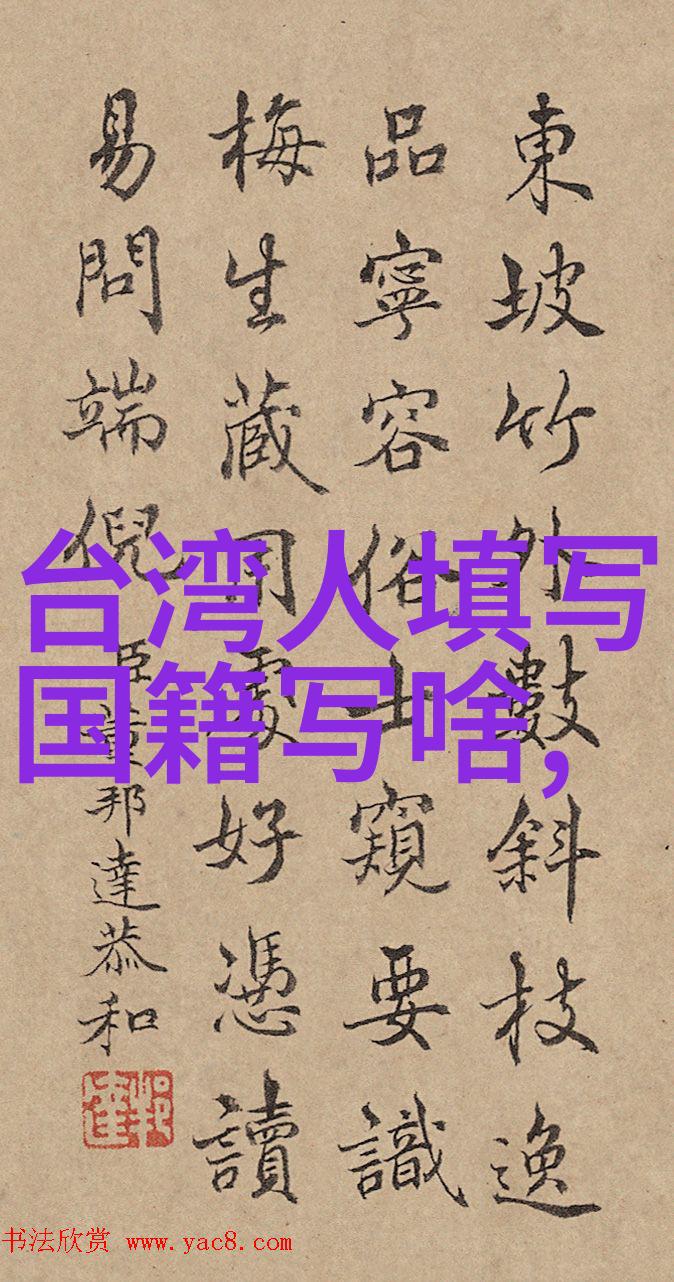 東坡竹外數斜枝逸
品寧容俗士窺要識
梅生蔵用處好憑讀
易問端倪
臣董邦達恭和
台湾人填写
国籍写啥,
书法欣赏 www.yac8.com